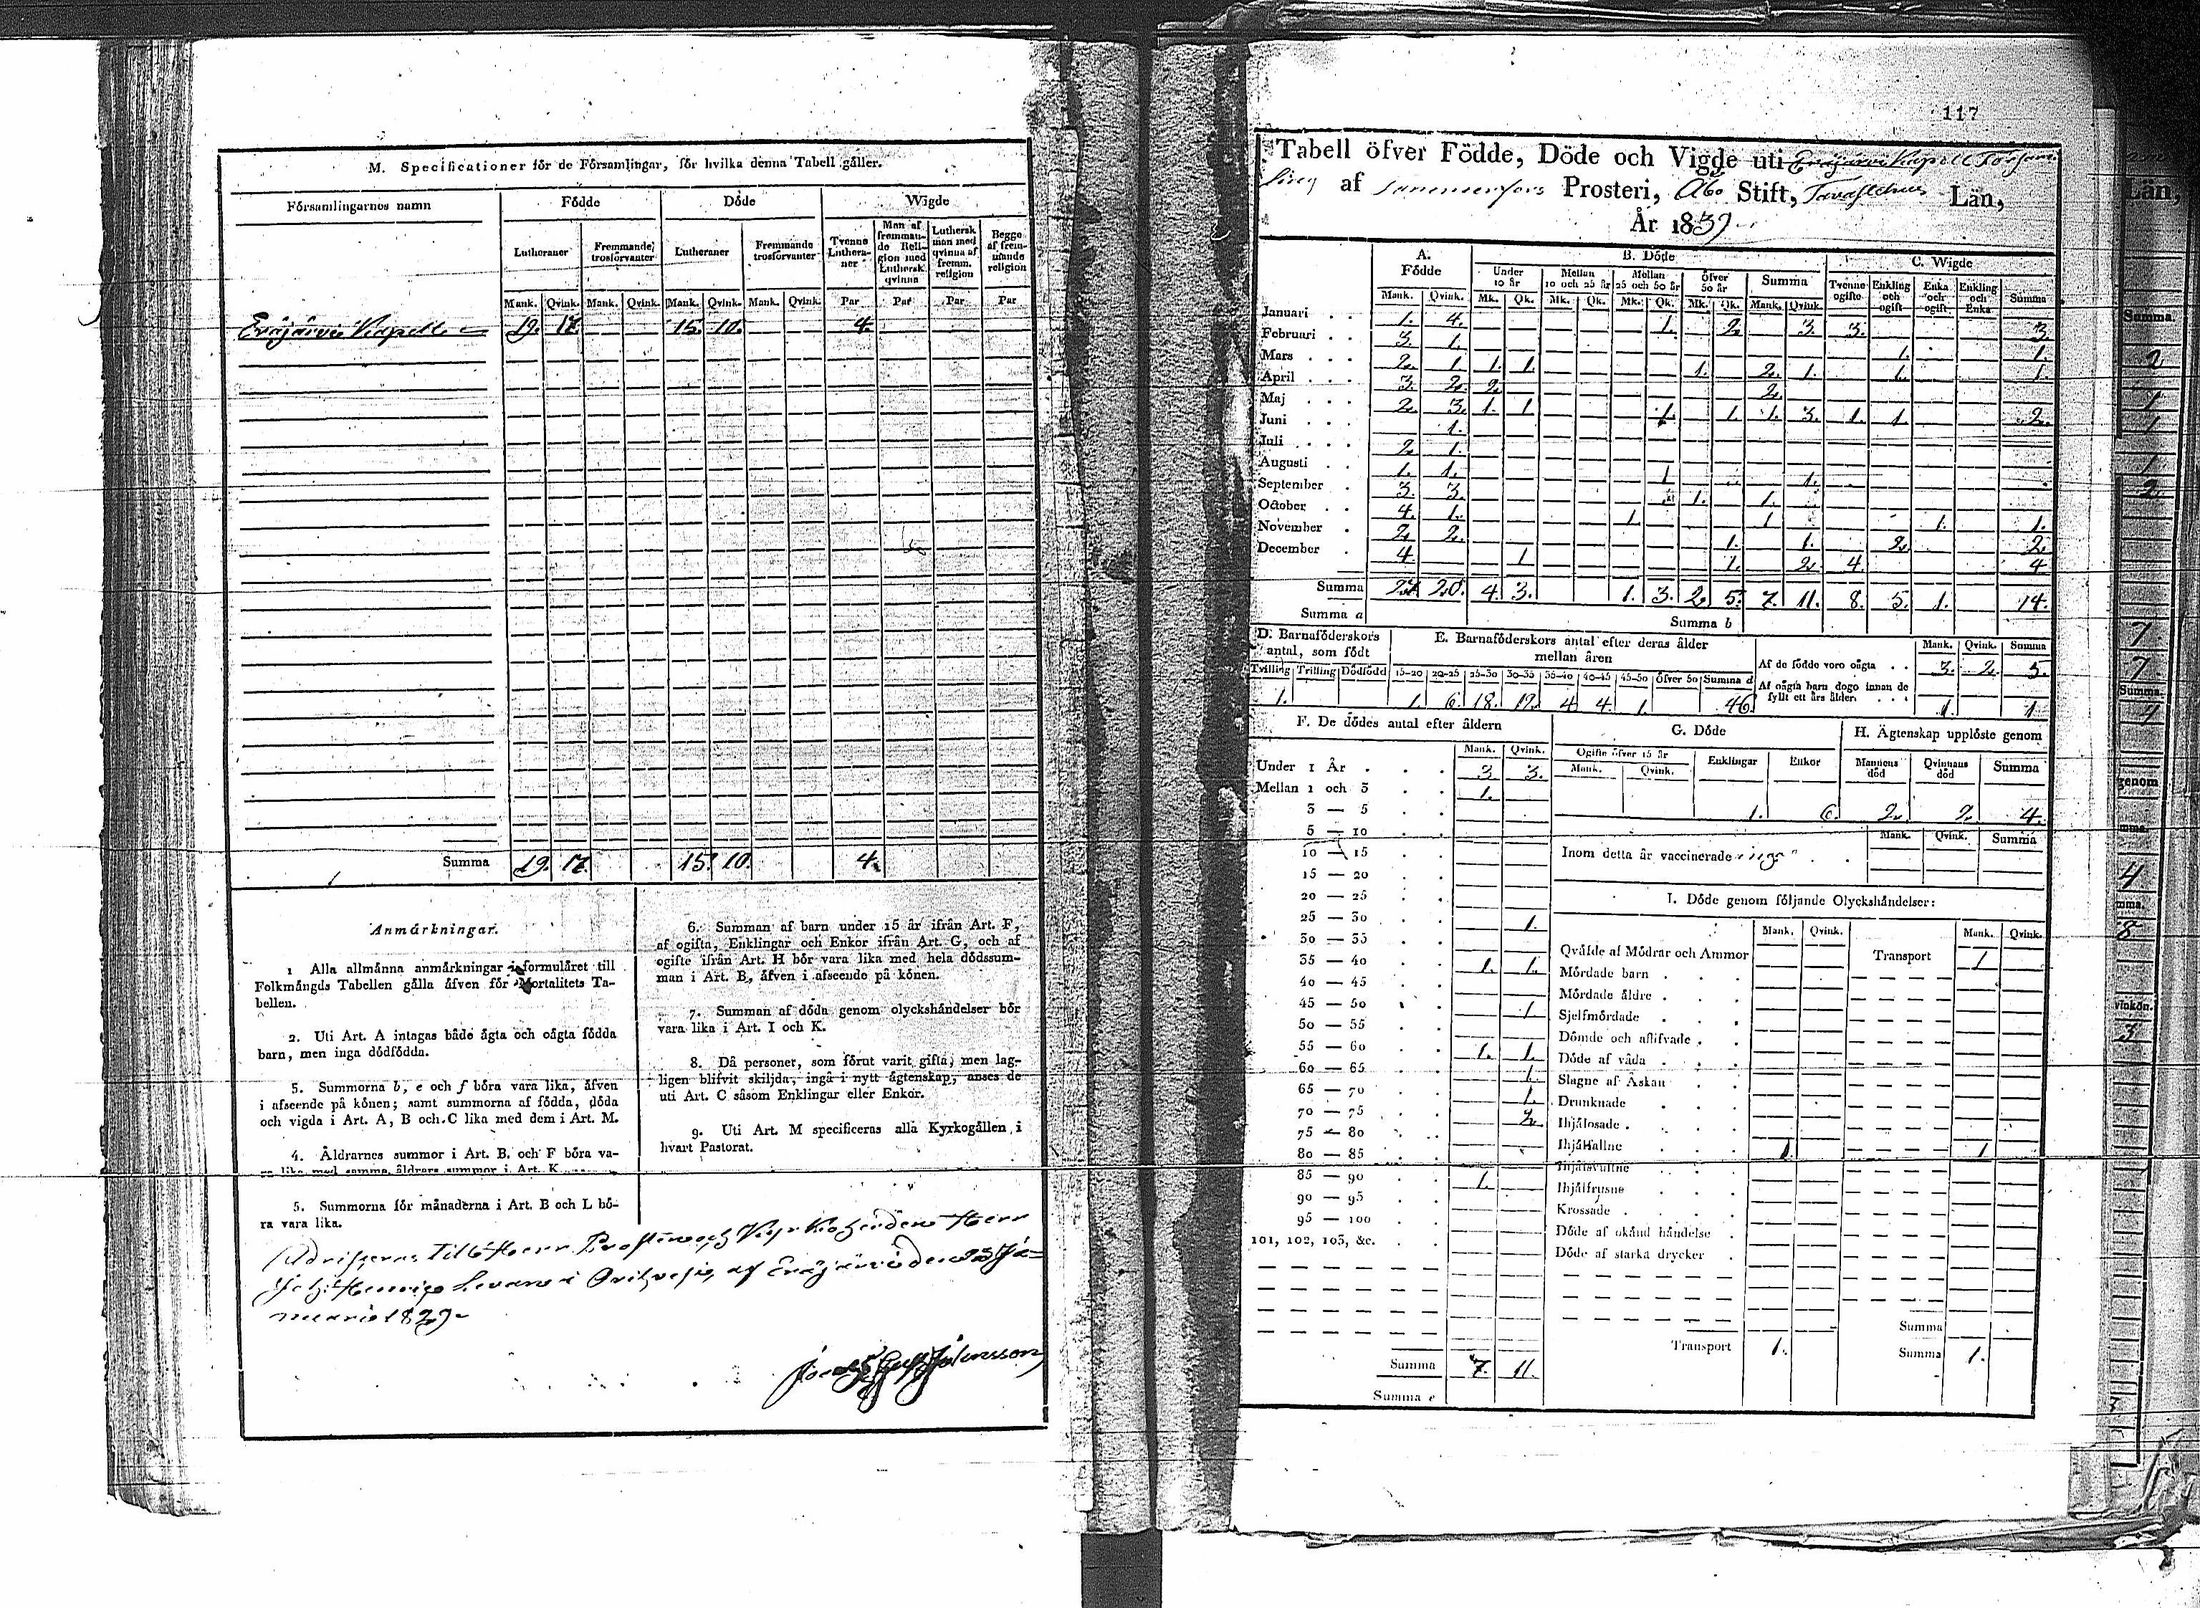 M. Specificationer för de Församlingar, för hvilka denna Tabell gäller.
Församlingarnes namn
Födde
Döde
Wigde
Lutheraner
Fremmande trosförvanter
Lutheraner
Fremmande trosförvanter
Tvenne Lutheraner
Man af fremmande Religion med Luthersk. qvinna
Luthersk man med qvinna af fremm. religion
Begge af fremmande religion
Mank. Qvink. Mank. Qvink. Mank. Qvink. Mank. Qvink. Par Par Par Par
Eräjärvi Kapell 19. 17. 15. 10. 4.
Summa 19. 17. 15. 10. 4.
Anmärkningar.
1 Alla allmänna anmärkningar i formuläret till
Folkmängds Tabellen gälla äfven för Mortalitets Ta-
bellen.
2. Uti Art. A intagas både ägta och oägta födda
barn, men inga dödfödda.
3. Summorna b, e och f böra vara lika, äfven
i afseende på könen; samt summorna af födda, döda
och vigda i Art. A, B och C lika med dem i Art. M.
4. Åldrarnes summor i Art. B och F böra va-
ra lika med samma åldrars summor i Art. K.
5. Summorna för månaderna i Art. B och L bö-
ra vara lika.
6. Summan af barn under 15 år ifrån Art. F,
af ogifta, Enklingar och Enkor ifrån Art. G, och af
ogifte ifrån Art. H bör vara lika med hela dödssum-
man i Art. B, äfven i afseende på könen.
7. Summan af döda genom olyckshändelser bör
vara lika i Art. I och K.
8. Då personer, som förut varit gifta, men lag-
ligen blifvit skiljda, ingå i nytt ägtenskap, anses de
uti Art. C såsom Enklingar eller Enkor.
9. Uti Art. M specificeras alla Kyrkogällen i
hvart Pastorat.
Herr
af Eräjärvi den 25 Ja-
nuarii 1829
117
Tabell öfver Födde, Döde och Vigde uti Eräjärvi Kapell Försam-
ling af Tammerfors Prosteri, Åbo Stift, Tavastehus Län,
År 1839.
A. Födde
B. Döde
C. Wigde
Under 10 år
Mellan 10 och 25 år
Mellan 25 och 50 år
Öfver 50 år
Summa
Tvenne ogifte
Enkling och ogift
Enka och ogift
Enkling och Enka
Summa
Mank. Qvink. Mk. Qk. Mk. Qk. Mk. Qk. Mk. Qk. Mank. Qvink.
Januari 1. 4. 1. 2. 3. 3. 3.
Februari 3. 1. 1. 1.
Mars 2. 1. 1. 1. 1. 2. 1. 1. 1.
April 3. 2. 2. 2.
Maj 2. 3. 1. 1 1. 1. 1. 3. 1. 1. 2.
Juni 1.
Juli 2. 1.
Augusti 1. 1. 1 1.
September 3. 3. 1. 1.
October 4. 1. 1. 1 1. 1.
November 2. 2. 1. 1. 2. 2.
December 4. 1 1. 2. 4. 4
Summa 20. 4. 3. 1. 3. 2. 5. 7. 11. 8. 5. 1. 14.
Summa a
Summa b
D. Barnaföderskors antal, som födt
Tvilling Trilling Dödfödd
1.
E. Barnaföderskors antal efter deras ålder mellan åren
15-20 20-25 25-30 30-35 35-40 40-45 45-50 öfver 50 Summa d
1. 6. 18. 12. 4. 4. 1. 46.
Mank. Qvink. Summa
Af de födde voro oägta 3. 2. 5.
Af oägta barn dogo innan de fyllt ett års ålder. 1. 1.
F. De dödes antal efter åldern
Mank. Qvink.
Under 1 År 3 3.
Mellan 1 och 3 1.
3 — 5
5 — 10
10 — 15
15 — 20
20 — 25
25 — 30 1.
30 — 35
35 — 40 1. 1.
40 — 45
45 — 50 1
50 — 55
55 — 60 1. 1.
60 — 65 1.
65 — 70 1.
70 — 75 2.
75 — 80
80 — 85
85 — 90 1.
90 — 95
95 — 100
101, 102, 103, &c.
Summa 7. 11.
Summa e
G. Döde
Ogifte öfver 15 år
Mank. Qvink. Enklingar Enkor
1. 6.
H. Ägtenskap upplöste genom
Mannens död Qvinnans död Summa
2. 2. 4.
Mank. Qvink. Summa
Inom detta år vaccinerade inga
I. Döde genom följande Olyckshändelser:
Mank. Qvink. Mank. Qvink.
Qväfde af Mödrar och Ammor
Transport 1
Mördade barn
Mördade äldre
Sjelfmördade
Dömde och aflifvade
Döde af våda
Slagne af Åskan
Drunknade
Ihjälosade
Ihjälfallne 1. 1
Ihjälsvultne
Ihjälfrusne
Krossade
Döde af okänd händelse
Döde af starka drycker
Summa
Transport 1.
Summa 1.